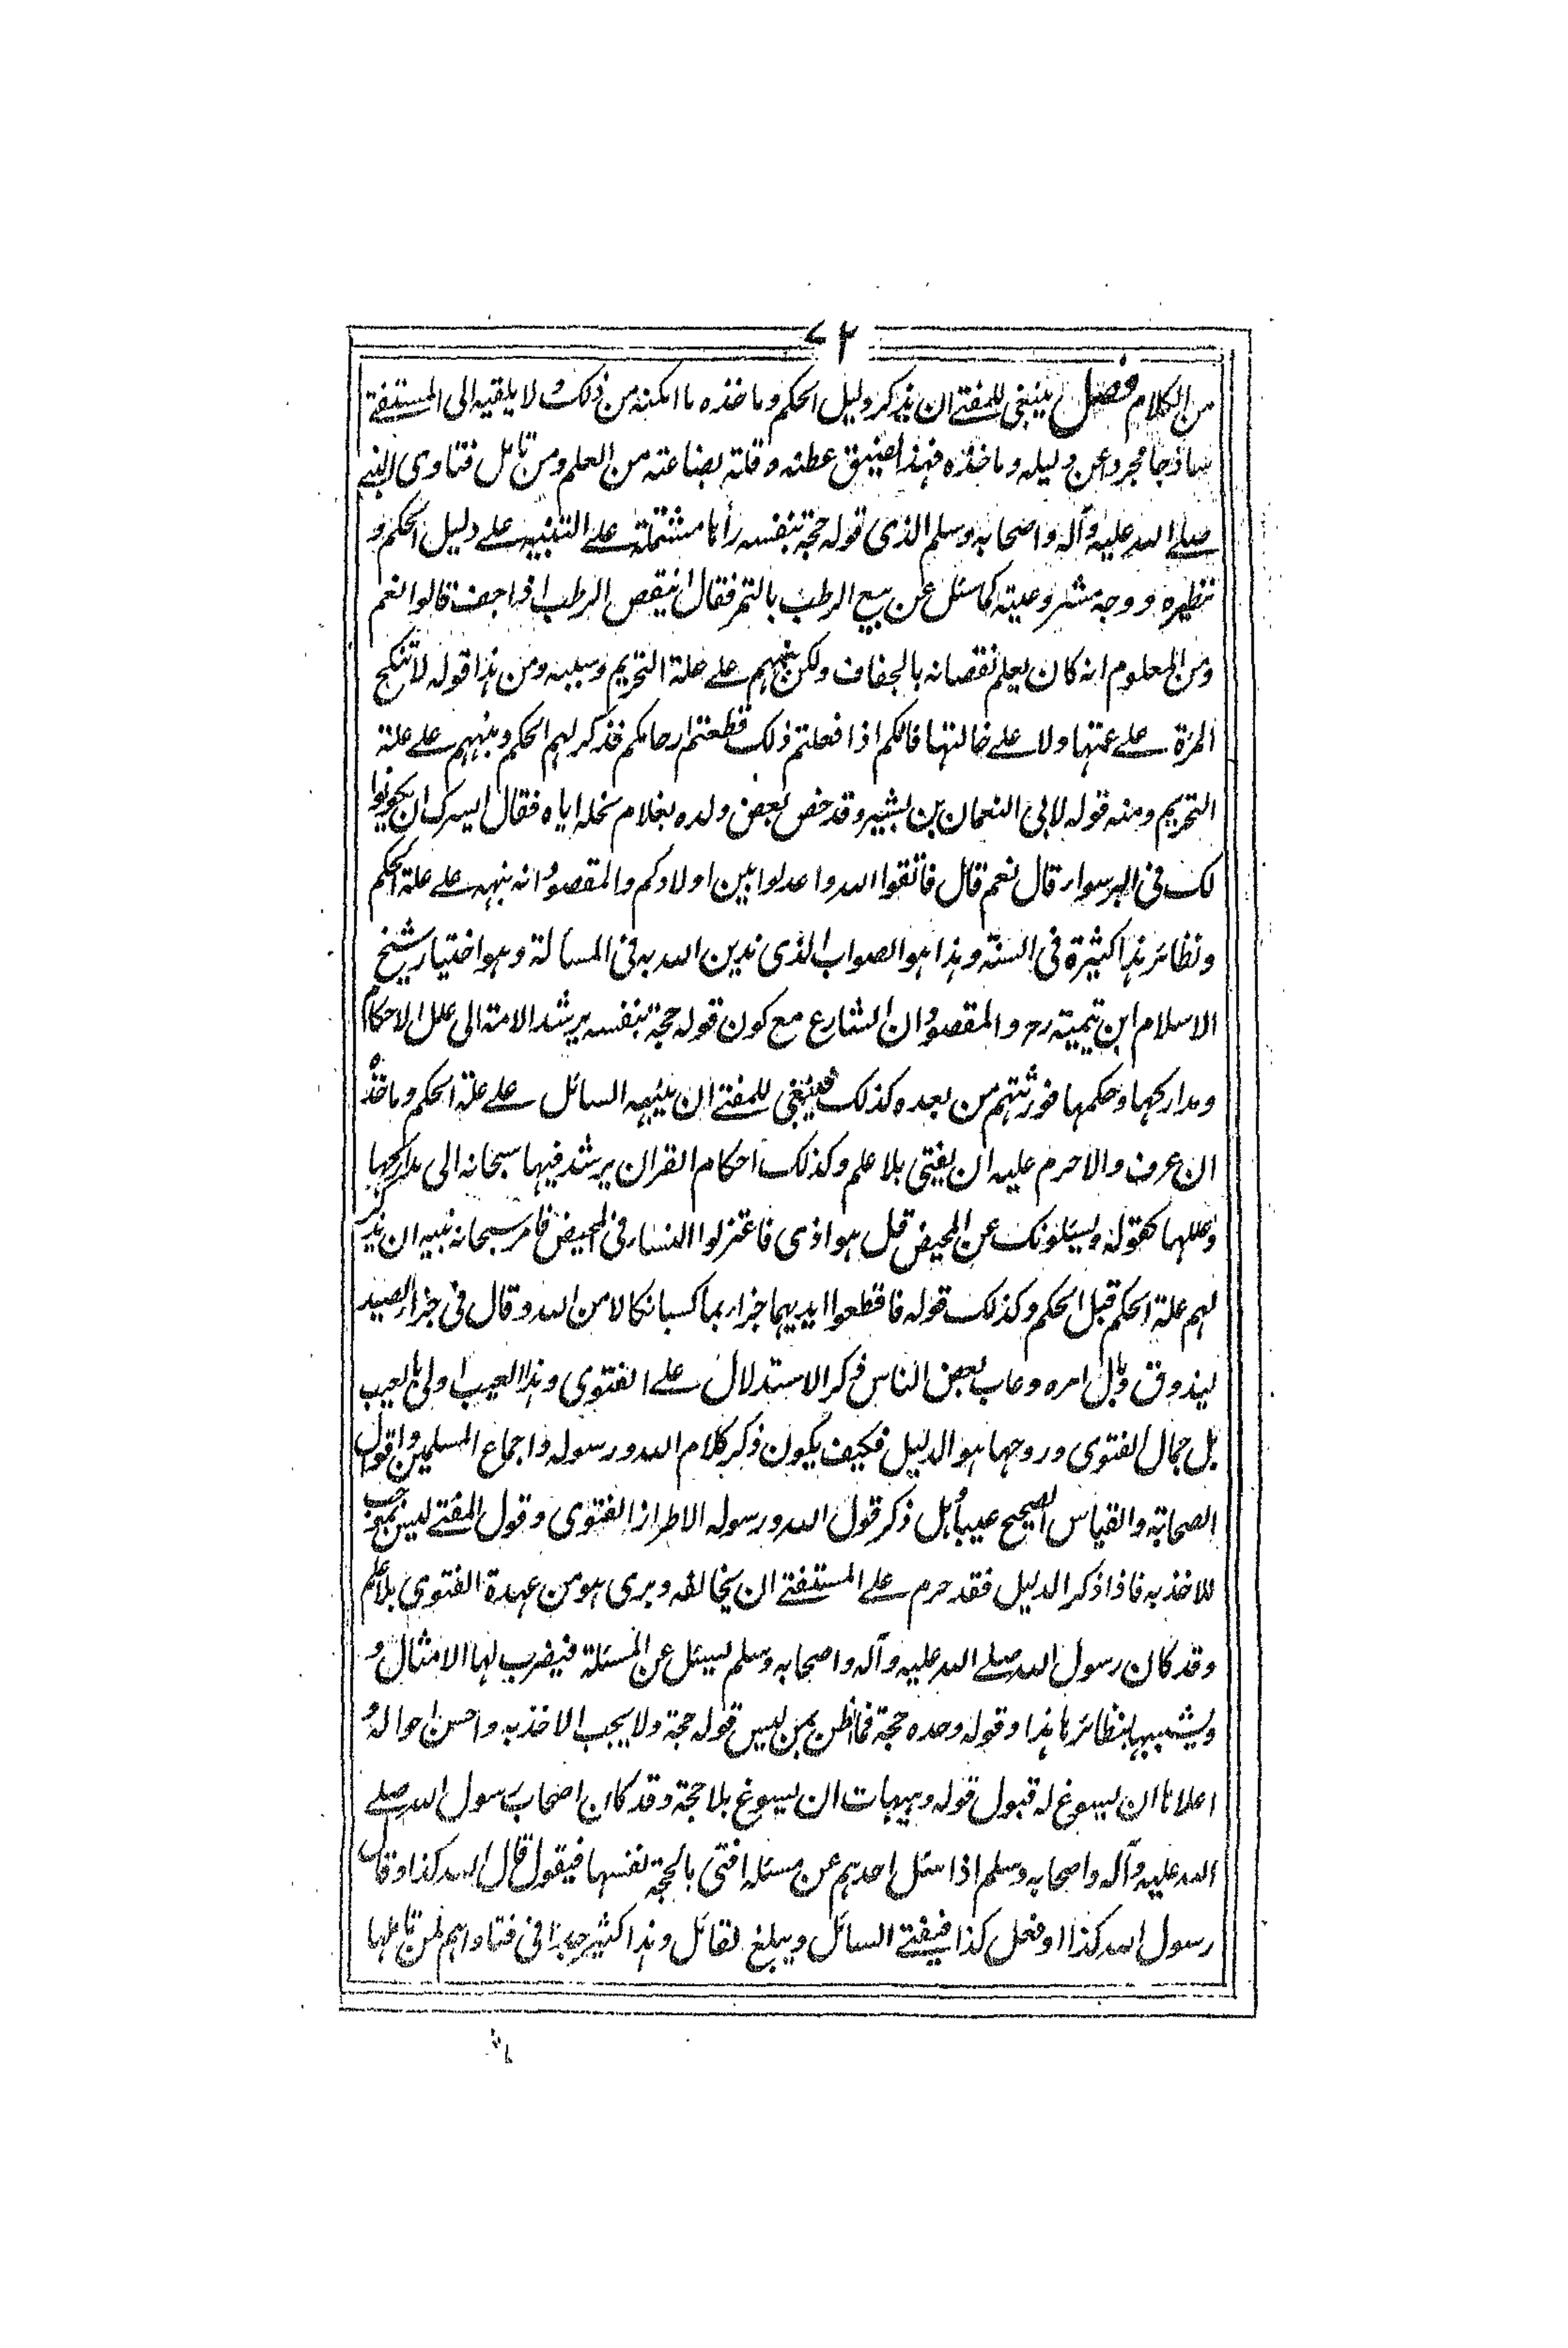 ٧٢
من الكلام فصل ينبغي للمفتے ان يذكر دليل الحكم وماخذه ما امكنه من ذلك ولا يلقيه الى المستفتے
ساذجا مجردا عن دليله وماخذه فهذا لضيق عطنه وقلة بضاعته من العلم ومن تامل فتاوى النبے
صلے الله عليه وآله واصحابه وسلم الذي قوله حجة بنفسه رأها مشتملة علے التنبيه علے دليل الحكم و
نظيره ووجه مشروعيته كما سئل عن بيع الرطب بالتمر فقال اينقص الرطب اذا جف قالوا نعم
ومن المعلوم انه كان يعلم نقصانه بالجفاف ولكن نبههم علے علة التحريم وسببه ومن هذا قوله لا تنكح
المرٔة علے عمتها ولا علے خالتها فانكم اذا فعلتم ذلك قطعتم ارحامكم فذكر لهم الحكم ونبههم علے علة
التحريم ومنه قوله لابي النعمان بن بشير وقد خص بعض ولده بغلام نحله اياه فقال ايسرك ان يكونوا
لك في البر سواء قال نعم قال فاتقوا الله واعدلوا بين اولادكم والمقصود انه نبهه علے علة الحكم
ونظائر هذا كثيرة في السنة وهذا هو الصواب الذي ندين الله به في المسألة وهو اختيار شيخ
الاسلام ابن تيمية رح والمقصود ان الشارع مع كون قوله حجة بنفسه يرشد الامة الى علل الاحكام
ومداركها وحكمها فورثتهم من بعده كذلك فينبغي للمفتے ان ينبه السائل علے علة الحكم وماخذه
ان عرف والا حرم عليه ان يفتي بلا علم وكذلك احكام القران يرشد فيها سبحانه الى مداركها
وعللها كقوله ويسئلونك عن المحيض قل هو اذى فاعتزلوا النساء في المحيض فامر سبحانه نبيه ان يذكر
لهم علة الحكم قبل الحكم وكذلك قوله فاقطعوا ايديهما جزاء بما كسبا نكالا من الله وقال في جزاء الصيد
ليذوق وبال امره وعاب بعض الناس ذكر الاستدلال علے الفتوى وهذا العيب اولى بالعيب
بل جمال الفتوى وروحها هو الدليل فكيف يكون ذكر كلام الله ورسوله واجماع المسلمين واقوال
الصحابة والقياس الصحيح عيباً بل ذكر قول الله ورسوله الا طراز الفتوى وقول المفتے ليس بموجب
للاخذ به فاذا ذكر الدليل فقد حرم علے المستفتے ان يخالفه وبرى هو من عهدة الفتوى بلا علم
وقد كان رسول الله صلے الله عليه وآله واصحابه وسلم يسئل عن المسئلة فيضرب لها الامثال و
ويشبهها بنظائرها هذا وقوله وحده حجة فما الظن بمن ليس قوله حجة ولا يجب الاخذ به واحسن احواله و
اعلاها ان يسوغ له قبول قوله وهيهات ان يسوغ بلا حجة وقد كان اصحاب رسول الله صلے
الله عليه وآله واصحابه وسلم اذا سئل احدهم عن مسئلة افتى بالحجة نفسها فيقول قال الله كذا وقال
رسول الله كذا او فعل كذا فيفتے السائل ويبلغ القائل وهذا كثير جدا في فتاواهم لمن تاملها